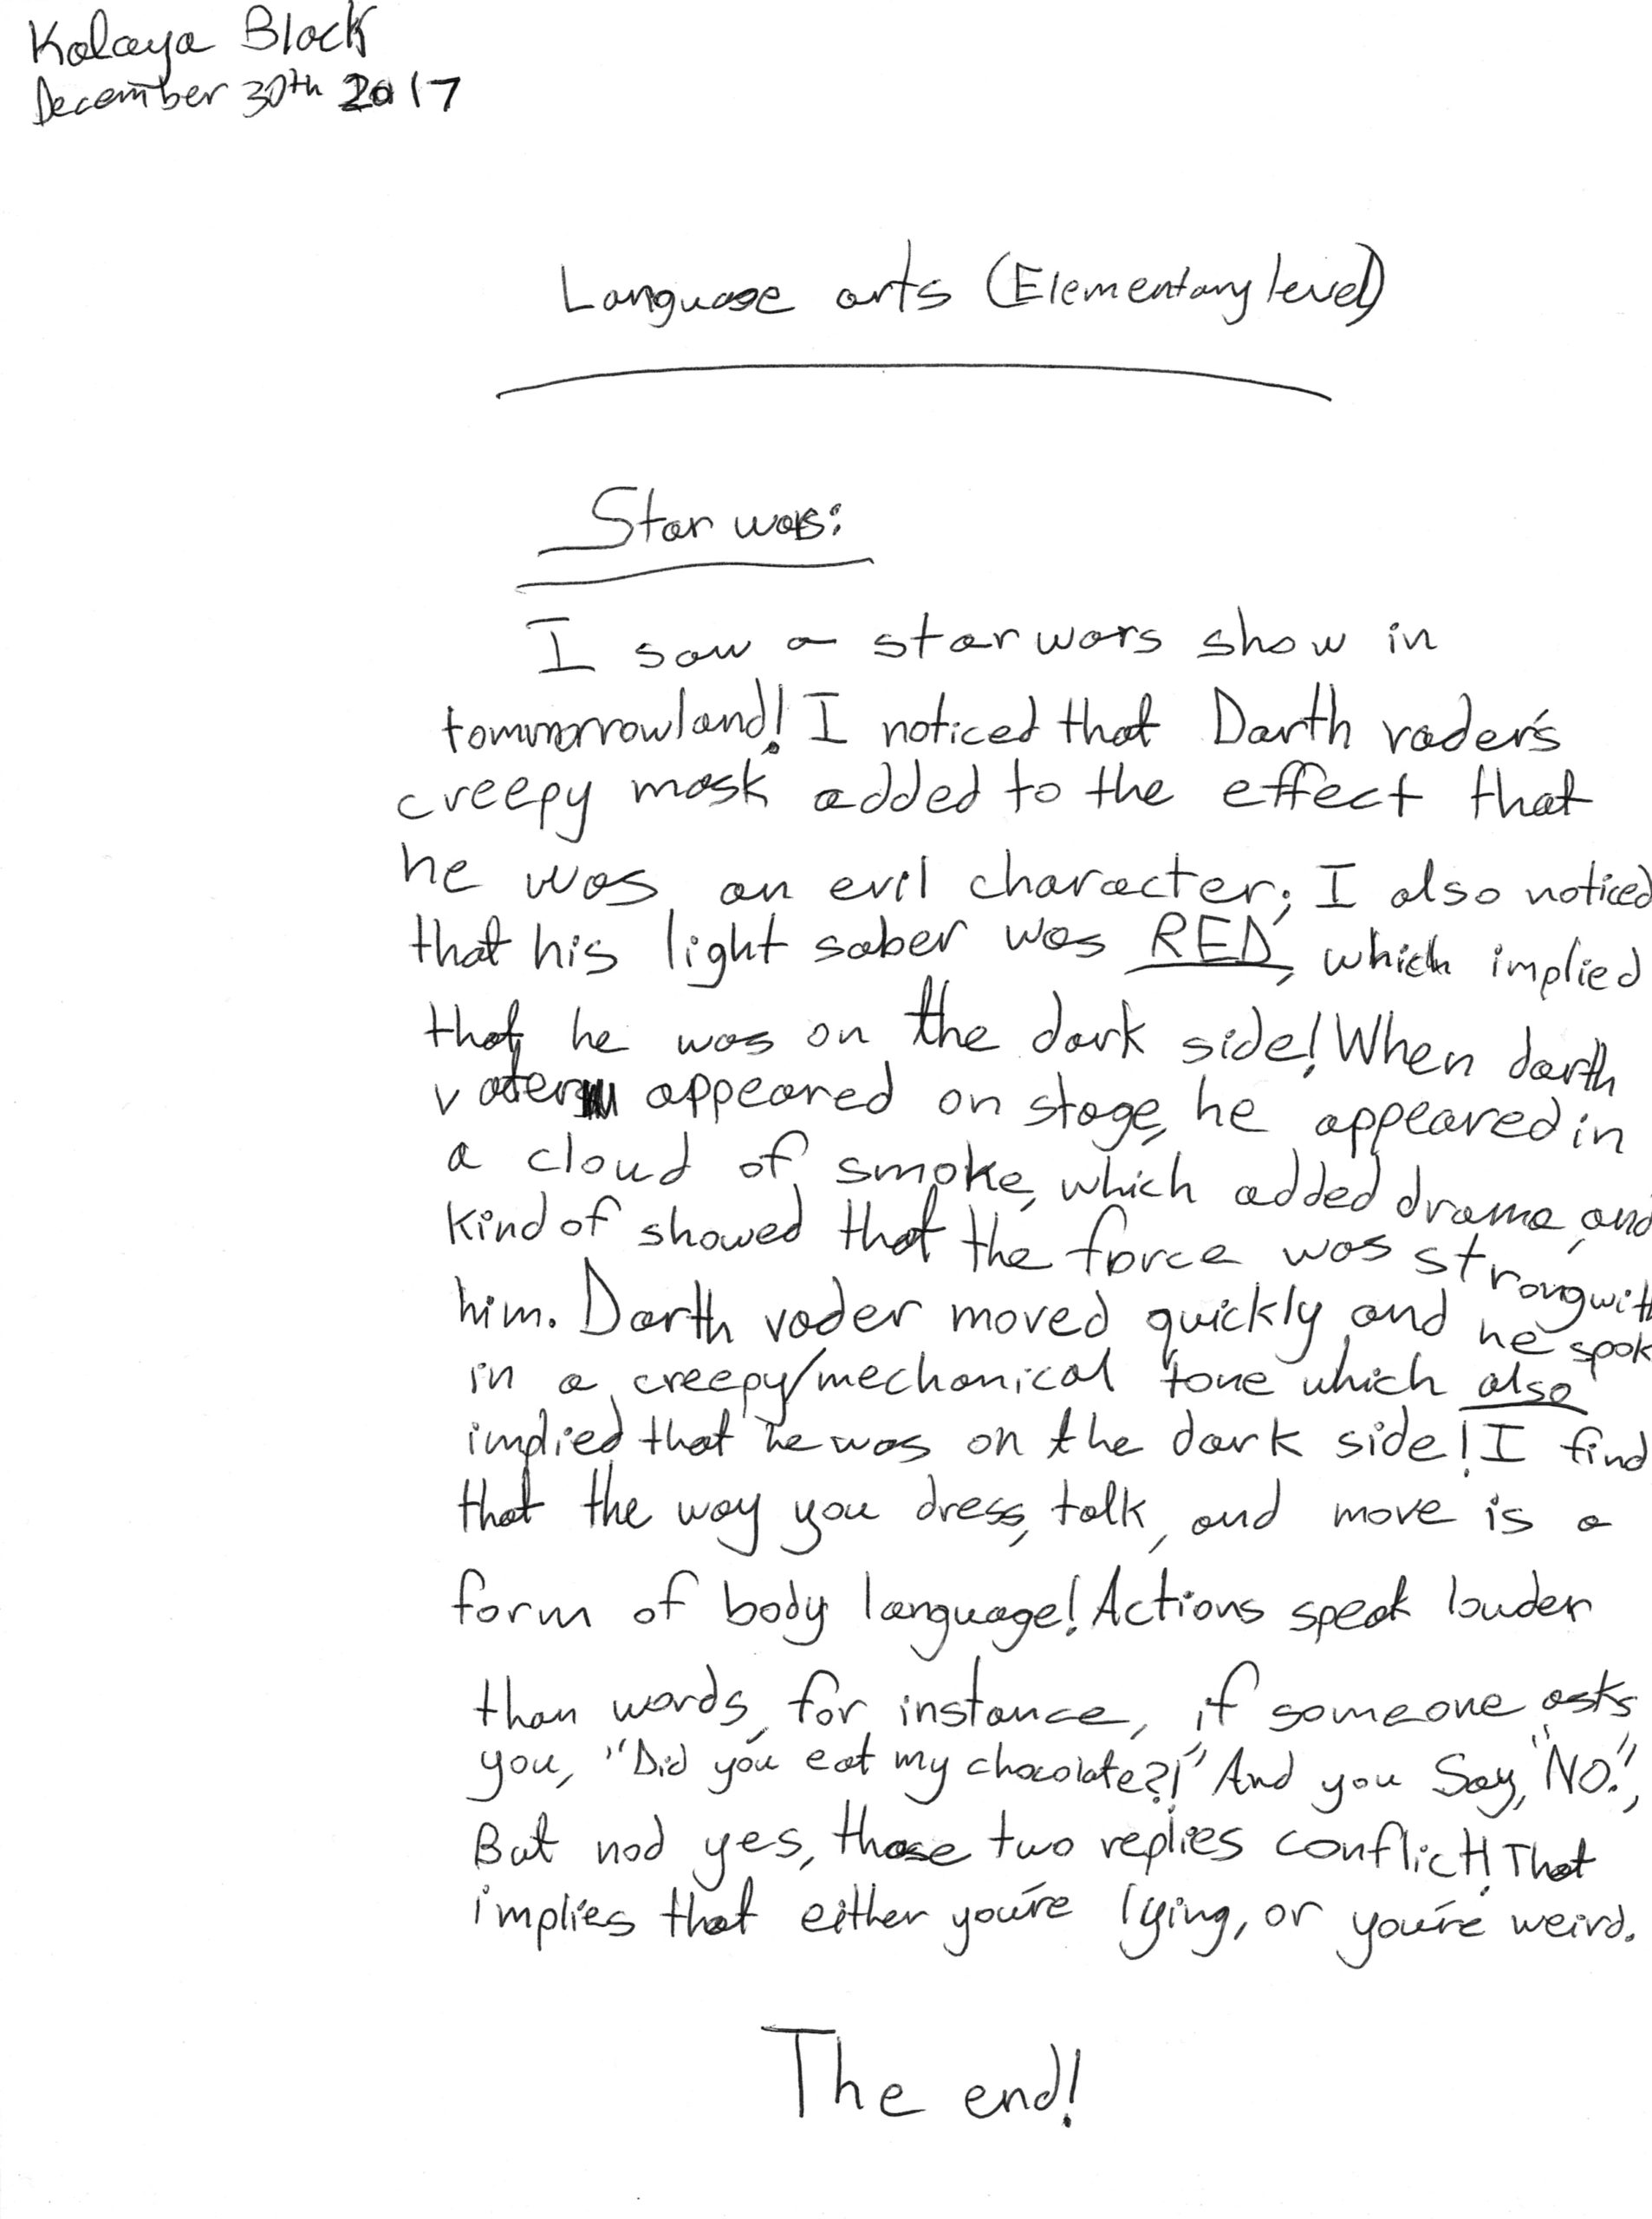 Kalaya Black
December 30th 2017
Language arts (Elementary level)
Star wars:
I saw a star wars show in
tommorrowland! I noticed that Darth vader's
creepy mask added to the effect that
he was an evil character; I also noticed
that his light saber was RED, which implied
that he was on the dark side! When darth
vater appeared on stage, he appeared in
a cloud of smoke, which added drama, and
kind of showed that the force was strong with
him. Darth vader moved quickly, and he spok
in a creepy/mechanical tone which also
implied that he was on the dark side! I find
that the way you dress, talk, and move is a
form of body language! Actions speak louder
than words, for instance, if someone asks
you, "Did you eat my chocolate?!" And you Say, "NO!",
But nod yes, those two replies conflict! That
implies that either you're lying, or you're weird.
The end!